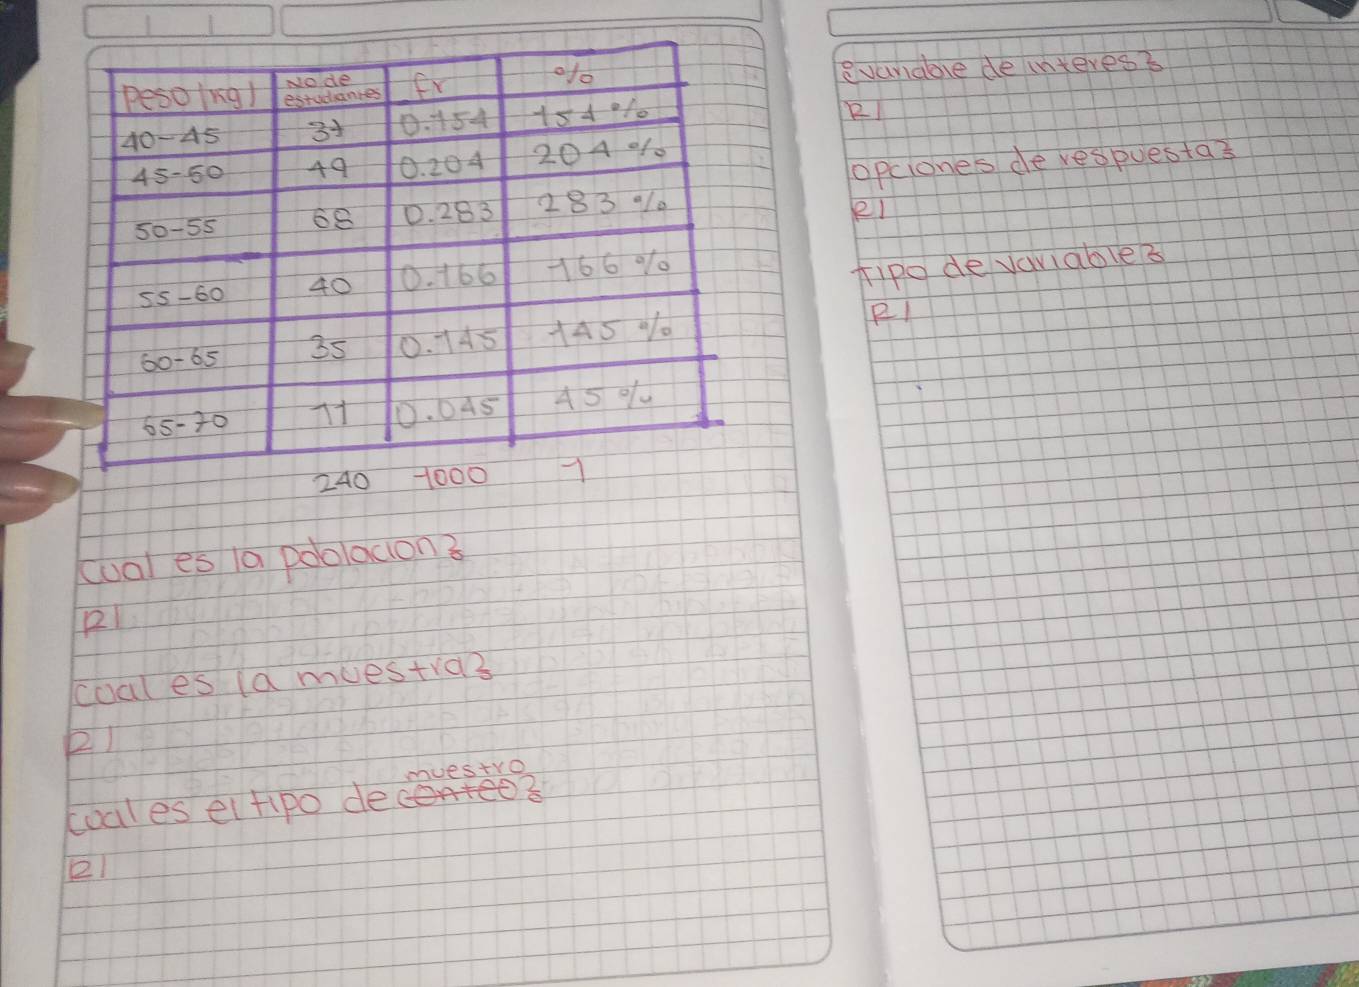 Peso (kg) No de estudiantes fr %
40-45 37 0.154 154%
45-50 49 0.204 204%
50-55 68 0.283 283%
55-60 40 0.166 166%
60-65 35 0.145 145%
65-70 11 0.045 45%
240 1000 1
cual es la poblacion?
R/
coal es la muestra?
R/
muestro
coal es el tipo de conteo?
R/
evariable de interes?
R/
opciones de respuesta?
R/
tipo de variable?
R/